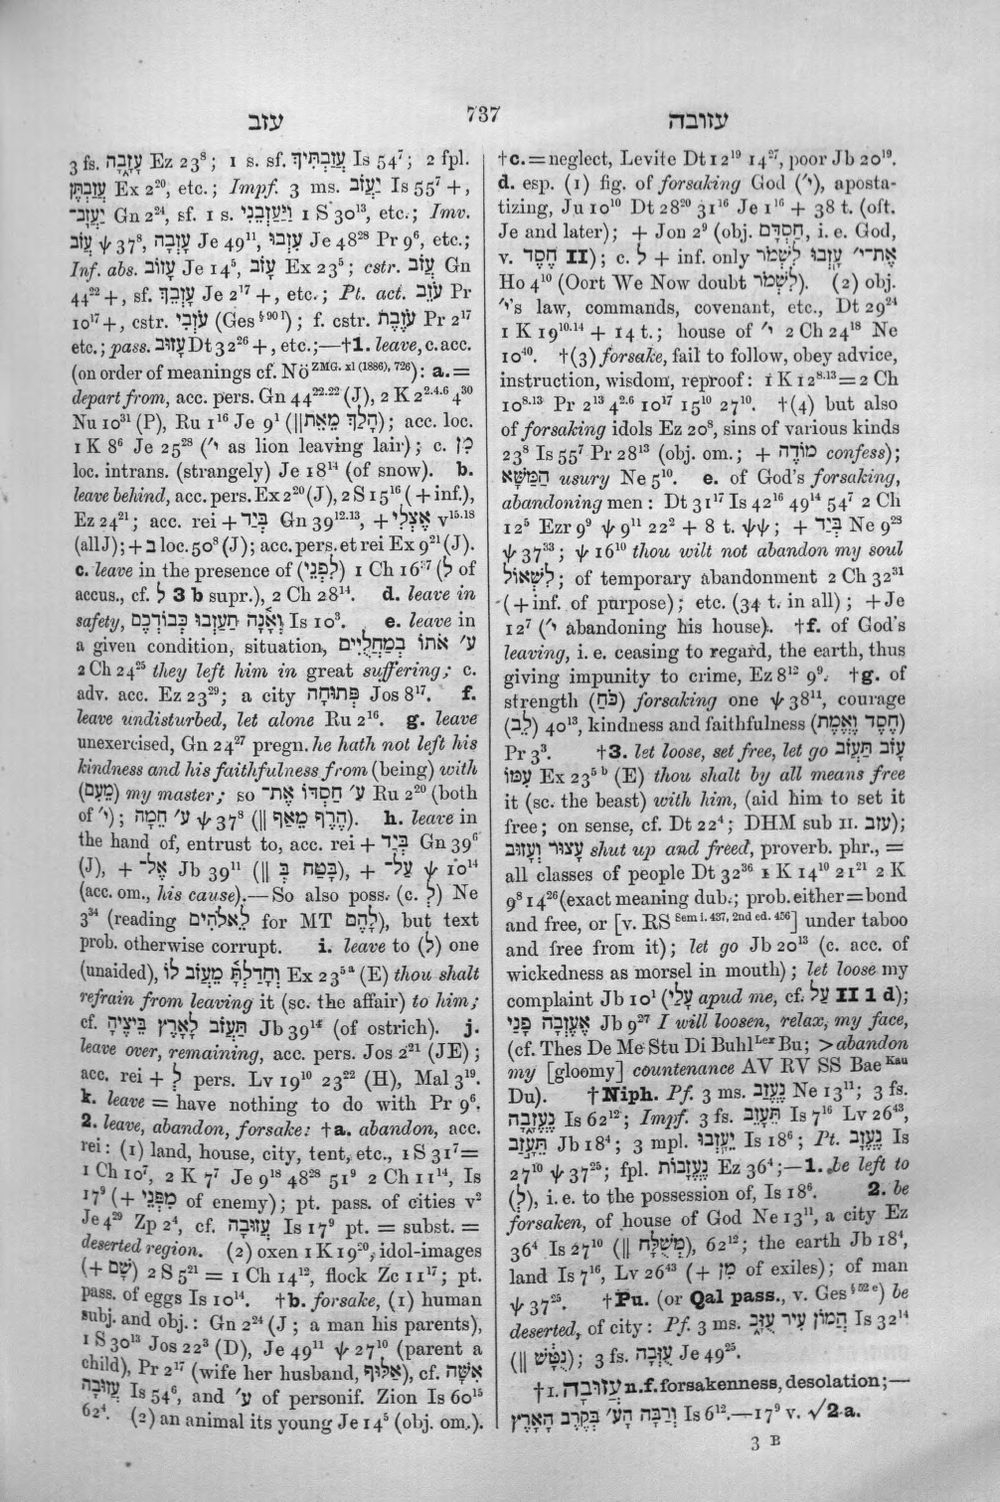 עזב
737
עזובה
3 fs. עָזָ֑בָה Ez 23⁸; 1 s. sf. עֲזַבְתִּיךְ Is 54⁷; 2 fpl.
עֲזַבְתֶּן Ex 2²⁰, etc.; Impf. 3 ms. יַעֲזֹב Is 55⁷ +,
יַעֲזָב־ Gn 2²⁴, sf. 1 s. וַיַּעַזְבֵנִי 1 S 30¹³, etc.; Imv.
עֲזֹב ψ 37⁸, עָזְבָה Je 49¹¹, עִזְבוּ Je 48²⁸ Pr 9⁶, etc.;
Inf. abs. עָזוֹב Je 14⁵, עָזֹב Ex 23⁵; cstr. עֲזֹב Gn
44²² +, sf. עָזְבֵךְ Je 2¹⁷ +, etc.; Pt. act. עֹזֵב Pr
10¹⁷ +, cstr. עֹזְבִי (Ges § 90 l); f. cstr. עֹזֶבֶת Pr 2¹⁷
etc.; pass. עָזוּב Dt 32²⁶ +, etc.;—†1. leave, c. acc.
(on order of meanings cf. Nö ZMG. xl (1886), 726): a. =
depart from, acc. pers. Gn 44²²·²² (J), 2 K 2²·⁴·⁶ 4³⁰
Nu 10³¹ (P), Ru 1¹⁶ Je 9¹ (|| הָלַךְ מֵאֵת); acc. loc.
1 K 8⁶ Je 25²⁸ (׳י as lion leaving lair); c. מִן
loc. intrans. (strangely) Je 18¹⁴ (of snow). b.
leave behind, acc. pers. Ex 2²⁰ (J), 2 S 15¹⁶ (+ inf.),
Ez 24²¹; acc. rei + בְּיַד Gn 39¹²·¹³, + אֶצְלִי v¹⁵·¹⁸
(all J); + ב loc. 50⁸ (J); acc. pers. et rei Ex 9²¹ (J).
c. leave in the presence of (לִפְנֵי) 1 Ch 16³⁷ (לְ of
accus., cf. לְ 3 b supr.), 2 Ch 28¹⁴. d. leave in
safety, וְאָ֫נָה תַעַזְבוּ כְּבוֹדְכֶם Is 10³. e. leave in
a given condition, situation, ע׳ אֹתוֹ בְּמַחֲלֻיִים
2 Ch 24²⁵ they left him in great suffering; c.
adv. acc. Ez 23²⁹; a city פְּתוּחָה Jos 8¹⁷. f.
leave undisturbed, let alone Ru 2¹⁶. g. leave
unexercised, Gn 24²⁷ pregn. he hath not left his
kindness and his faithfulness from (being) with
(מֵעִם) my master; so ע׳ חַסְדּוֹ אֶת־ Ru 2²⁰ (both
of ׳י); ע׳ חֵמָה ψ 37⁸ (|| הֶרֶף מֵאַף). h. leave in
the hand of, entrust to, acc. rei + בְּיַד Gn 39⁶
(J), + אֶל־ Jb 39¹¹ (|| בָּטַח בְּ), + עַל־ ψ 10¹⁴
(acc. om., his cause).—So also poss. (c. לְ) Ne
3³⁴ (reading לֵאלֹהִים for MT לָהֶם), but text
prob. otherwise corrupt. i. leave to (לְ) one
(unaided), וְחָדַלְתָּ֫ מֵעֲזֹב לוֹ Ex 23⁵ᵃ (E) thou shalt
refrain from leaving it (sc. the affair) to him;
cf. תַּעֲזֹב לָאָרֶץ בֵּיצֶיהָ Jb 39¹⁴ (of ostrich). j.
leave over, remaining, acc. pers. Jos 2²¹ (JE);
acc. rei + לְ pers. Lv 19¹⁰ 23²² (H), Mal 3¹⁹.
k. leave = have nothing to do with Pr 9⁶.
2. leave, abandon, forsake: †a. abandon, acc.
rei: (1) land, house, city, tent, etc., 1 S 31⁷ =
1 Ch 10⁷, 2 K 7⁷ Je 9¹⁸ 48²⁸ 51⁹ 2 Ch 11¹⁴, Is
17⁹ (+ מִפְּנֵי of enemy); pt. pass. of cities v²
Je 4²⁹ Zp 2⁴, cf. עֲזוּבָה Is 17⁹ pt. = subst. =
deserted region. (2) oxen 1 K 19²⁰, idol-images
(+ שָׁם) 2 S 5²¹ = 1 Ch 14¹², flock Zc 11¹⁷; pt.
pass. of eggs Is 10¹⁴. †b. forsake, (1) human
subj. and obj.: Gn 2²⁴ (J; a man his parents),
1 S 30¹³ Jos 22³ (D), Je 49¹¹ ψ 27¹⁰ (parent a
child), Pr 2¹⁷ (wife her husband, אַלּוּף), cf. אִשָּׁה
עֲזוּבָה Is 54⁶, and ע׳ of personif. Zion Is 60¹⁵
62⁴. (2) an animal its young Je 14⁵ (obj. om.).
†c. = neglect, Levite Dt 12¹⁹ 14²⁷, poor Jb 20¹⁹.
d. esp. (1) fig. of forsaking God (׳י), aposta-
tizing, Ju 10¹⁰ Dt 28²⁰ 31¹⁶ Je 1¹⁶ + 38 t. (oft.
Je and later); + Jon 2⁹ (obj. חַסְדָּם, i. e. God,
v. חֶסֶד II); c. לְ + inf. only אֶת־י׳ עָזְבוּ לִשְׁמֹר
Ho 4¹⁰ (Oort We Now doubt לִשְׁמֹר). (2) obj.
׳י's law, commands, covenant, etc., Dt 29²⁴
1 K 19¹⁰·¹⁴ + 14 t.; house of ׳י 2 Ch 24¹⁸ Ne
10⁴⁰. †(3) forsake, fail to follow, obey advice,
instruction, wisdom, reproof: 1 K 12⁸·¹³ = 2 Ch
10⁸·¹³ Pr 2¹³ 4²·⁶ 10¹⁷ 15¹⁰ 27¹⁰. †(4) but also
of forsaking idols Ez 20⁸, sins of various kinds
23⁸ Is 55⁷ Pr 28¹³ (obj. om.; + מוֹדֶה confess);
הַמַּשָּׁא usury Ne 5¹⁰. e. of God's forsaking,
abandoning men: Dt 31¹⁷ Is 42¹⁶ 49¹⁴ 54⁷ 2 Ch
12⁵ Ezr 9⁹ ψ 9¹¹ 22² + 8 t. ψψ; + בְּיַד Ne 9²⁸
ψ 37³³; ψ 16¹⁰ thou wilt not abandon my soul
לִשְׁאוֹל; of temporary abandonment 2 Ch 32³¹
(+ inf. of purpose); etc. (34 t. in all); + Je
12⁷ (׳י abandoning his house). †f. of God's
leaving, i. e. ceasing to regard, the earth, thus
giving impunity to crime, Ez 8¹² 9⁹. †g. of
strength (כֹּחַ) forsaking one ψ 38¹¹, courage
(לֵב) 40¹³, kindness and faithfulness (חֶסֶד וֶאֱמֶת)
Pr 3³. †3. let loose, set free, let go עָזֹב תַּעֲזֹב
עִמּוֹ Ex 23⁵ᵇ (E) thou shalt by all means free
it (sc. the beast) with him, (aid him to set it
free; on sense, cf. Dt 22⁴; DHM sub II. עזב);
עָצוּר וְעָזוּב shut up and freed, proverb. phr., =
all classes of people Dt 32³⁶ 1 K 14¹⁰ 21²¹ 2 K
9⁸ 14²⁶ (exact meaning dub.; prob. either = bond
and free, or [v. RS Sem i. 437, 2nd ed. 456] under taboo
and free from it); let go Jb 20¹³ (c. acc. of
wickedness as morsel in mouth); let loose my
complaint Jb 10¹ (עָלַי apud me, cf. עַל II 1 d);
אֶעֶזְבָה פָנַי Jb 9²⁷ I will loosen, relax, my face,
(cf. Thes De Me Stu Di Buhl Lex Bu; > abandon
my [gloomy] countenance AV RV SS Bae Kau
Du). †Niph. Pf. 3 ms. נֶעֱזַב Ne 13¹¹; 3 fs.
נֶעֶזְבָה Is 62¹²; Impf. 3 fs. תֵּעָזֵב Is 7¹⁶ Lv 26⁴³,
תֵּעָזַב Jb 18⁴; 3 mpl. יֵעָזְבוּ Is 18⁶; Pt. נֶעֱזָב Is
27¹⁰ ψ 37²⁵; fpl. נֶעֱזָבוֹת Ez 36⁴;—1. be left to
(לְ), i. e. to the possession of, Is 18⁶. 2. be
forsaken, of house of God Ne 13¹¹, a city Ez
36⁴ Is 27¹⁰ (|| מְשֻׁלָּח), 62¹²; the earth Jb 18⁴,
land Is 7¹⁶, Lv 26⁴³ (+ מִן of exiles); of man
ψ 37²⁵. †Pu. (or Qal pass., v. Ges § 52 e) be
deserted, of city: Pf. 3 ms. הֲמוֹן עִיר עֻזָּ֑ב Is 32¹⁴
(|| נֻטָּ֑שׁ); 3 fs. עֻזְּבָה Je 49²⁵.
†I. עֲזוּבָה n.f. forsakenness, desolation;—
וְרַבָּה הָע׳ בְּקֶרֶב הָאָרֶץ Is 6¹².—17⁹ v. √ 2 a.
3 B